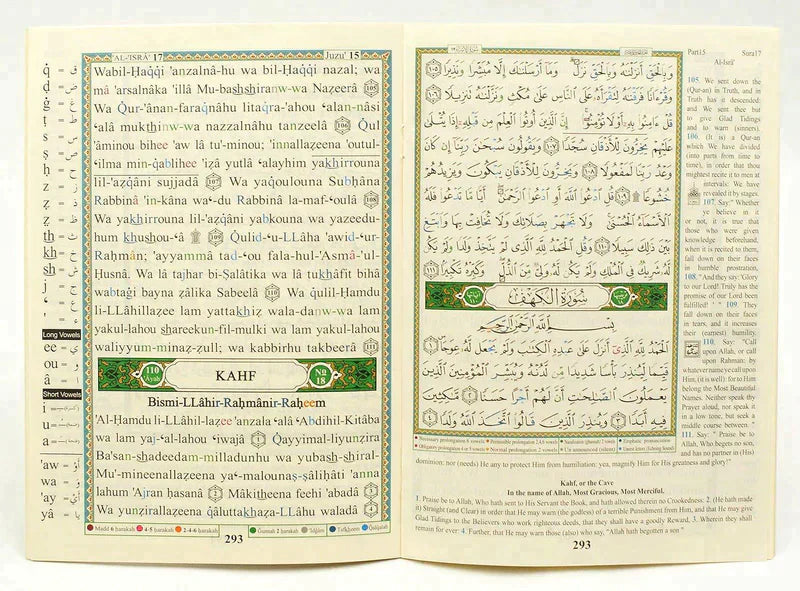 'AL-'ISRÂ' 17
Juzu' 15
Wabil-Ḥaqqi 'anzalnâ-hu wa bil-Ḥaqqi nazal; wa
mâ 'arsalnâka 'illâ Mu-bashshiranw-wa Nazeerâ 105
Wa Qur-'ânan-faraqnâhu litaqra-'ahou ʻalan-nâsi
ʻalâ mukthinw-wa nazzalnâhu tanzeelâ 106 Qul
'âminou bihee 'aw lâ tu'-minou; 'innallaẓeena 'outul-
ʻilma min-qablihee 'iẓâ yutlâ ʻalayhim yakhirrouna
lil-'aẓqâni sujjadâ 107 Wa yaqoulouna Subḥâna
Rabbinâ 'in-kâna waʻ-du Rabbinâ la-maf-ʻoulâ 108
Wa yakhirrouna lil-'aẓqâni yabkouna wa yazeedu-
hum khushou-ʻâ ۩ 109 Qulid-ʻu-LLâha 'awid-ʻur-
Raḥmân; 'ayyammâ tad-ʻou fala-hul-'Asmâ-'ul-
Ḥusnâ. Wa lâ tajhar bi-Ṣalâtika wa lâ tukhâfit bihâ
wabtaġi bayna ẓâlika Sabeelâ 110 Wa qulil-Ḥamdu
li-LLâhillaẓee lam yattakhiẓ wala-danw-wa lam
yakul-lahou shareekun-fil-mulki wa lam yakul-lahou
waliyyum-minaẓ-ẓull; wa kabbirhu takbeerâ 111
110 Ayah
KAHF
No 18
Bismi-LLâhir-Raḥmânir-Raḥeem
'Al-Ḥamdu li-LLâhil-laẓee 'anzala ʻalâ ʻAbdihil-Kitâba
wa lam yaj-ʻal-lahou ʻiwajâ 1 Qayyimal-liyunẓira
Ba'san-shadeedam-milladunhu wa yubash-shiral-
Mu'-mineenallaẓeena yaʻ-malounaṣ-ṣâliḥâti 'anna
lahum 'Ajran ḥasanâ 2 Mâkitheena feehi 'abadâ 3
Wa yunẓirallaẓeena qâluttakhaẓa-LLâhu waladâ 4
Madd 6 ḥarakah 4-5 ḥarakah 2-4-6 ḥarakah Ġunnah 2 ḥarakah 'Idġâm Tafkheem Qalqalah
293
q̇ = ق
ḍ = ض
ġ = غ
ṭ = ط
ṣ = ص
ḥ = ح
ẓ = ذ
z = ز
ẓ = ظ
th = ث
kh = خ
sh = ش
j = ج
ʻ = ع
' = ء
Long Vowels
ee = ي
ou = و
â = ا
Short Vowels
i =
u =
a =
'aw = أَوْ
wa = وَ
'ay = أَيْ
yâ = يَا
وَبِالْحَقِّ أَنزَلْنَاهُ وَبِالْحَقِّ نَزَلَ وَمَا أَرْسَلْنَاكَ إِلَّا مُبَشِّرًا وَنَذِيرًا ١٠٥
وَقُرْءَانًا فَرَقْنَاهُ لِتَقْرَأَهُ عَلَى النَّاسِ عَلَى مُكْثٍ وَنَزَّلْنَاهُ تَنزِيلًا ١٠٦
قُلْ ءَامِنُوا بِهِ أَوْ لَا تُؤْمِنُوا إِنَّ الَّذِينَ أُوتُوا الْعِلْمَ مِن قَبْلِهِ إِذَا يُتْلَى
عَلَيْهِمْ يَخِرُّونَ لِلْأَذْقَانِ سُجَّدًا ١٠٧ وَيَقُولُونَ سُبْحَانَ رَبِّنَا إِن كَانَ
وَعْدُ رَبِّنَا لَمَفْعُولًا ١٠٨ وَيَخِرُّونَ لِلْأَذْقَانِ يَبْكُونَ وَيَزِيدُهُمْ
خُشُوعًا ۩ ١٠٩ قُلِ ادْعُوا اللَّهَ أَوِ ادْعُوا الرَّحْمَٰنَ أَيًّا مَّا تَدْعُوا فَلَهُ
الْأَسْمَاءُ الْحُسْنَى وَلَا تَجْهَرْ بِصَلَاتِكَ وَلَا تُخَافِتْ بِهَا وَابْتَغِ
بَيْنَ ذَٰلِكَ سَبِيلًا ١١٠ وَقُلِ الْحَمْدُ لِلَّهِ الَّذِي لَمْ يَتَّخِذْ وَلَدًا وَلَمْ يَكُن
لَّهُ شَرِيكٌ فِي الْمُلْكِ وَلَمْ يَكُن لَّهُ وَلِيٌّ مِّنَ الذُّلِّ وَكَبِّرْهُ تَكْبِيرًا ١١١
سُورَةُ الْكَهْفِ
بِسْمِ اللَّهِ الرَّحْمَٰنِ الرَّحِيمِ
الْحَمْدُ لِلَّهِ الَّذِي أَنزَلَ عَلَى عَبْدِهِ الْكِتَابَ وَلَمْ يَجْعَل لَّهُ عِوَجًا ١
قَيِّمًا لِّيُنذِرَ بَأْسًا شَدِيدًا مِّن لَّدُنْهُ وَيُبَشِّرَ الْمُؤْمِنِينَ الَّذِينَ
يَعْمَلُونَ الصَّالِحَاتِ أَنَّ لَهُمْ أَجْرًا حَسَنًا ٢ مَّاكِثِينَ
فِيهِ أَبَدًا ٣ وَيُنذِرَ الَّذِينَ قَالُوا اتَّخَذَ اللَّهُ وَلَدًا ٤
Part15 Sora17
Al-Isrâ'
105. We sent down the
(Qur-an) in Truth, and in
Truth has it descended:
and We sent thee but
to give Glad Tidings
and to warn (sinners).
106. (It is) a Qur-an
which We have divided
(into parts from time to
time), in order that thou
mightest recite it to men at
intervals: We have
revealed it by stages.
107. Say:" Whether
ye believe in it
or not, it is true that
those who were given
knowledge beforehand,
when it is recited to them,
fall down on their faces
in humble prostration,
108. "And they say: 'Glory
to our Lord! Truly has the
promise of our Lord been
fulfilled!'" 109. They
fall down on their faces
in tears, and it increases
their (earnest) humility.
110. Say: "Call
upon Allah, or call
upon Rahman: by
whatever name ye call upon
Him, (it is well): for to Him
belong the Most Beautiful
Names. Neither speak thy
Prayer aloud, nor speak it
in a low tone, but seek a
middle course between."
111. Say: " Praise be to
Allah, Who begets no son,
and has no partner in (His)
dominion: nor (needs) He any to protect Him from humiliation: yea, magnify Him for His greatness and glory!"
Kahf, or the Cave
In the name of Allah, Most Gracious, Most Merciful.
1. Praise be to Allah, Who hath sent to His Servant the Book, and hath allowed therein no Crookedness: 2. (He hath made
it) Straight (and Clear) in order that He may warn (the godless) of a terrible Punishment from Him, and that He may give
Glad Tidings to the Believers who work righteous deeds, that they shall have a goodly Reward, 3. Wherein they shall
remain for ever: 4. Further, that He may warn those (also) who say, "Allah hath begotten a son "
293